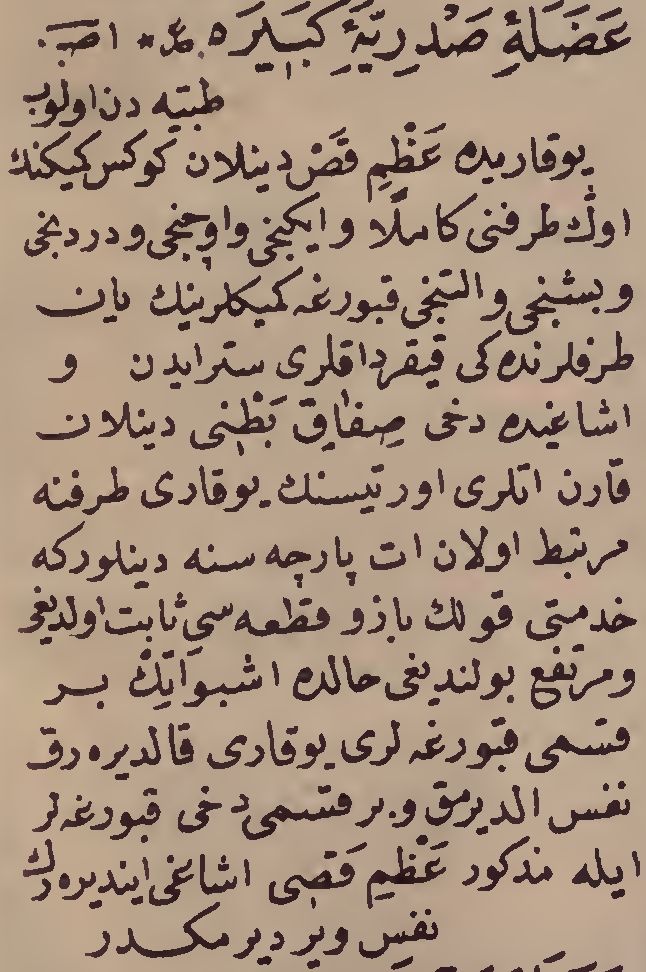 عَضَلَهٔ صَدْرِيَّهٔ كَبَيِرَه. عر * اصب.
طبيه دن اولوب
يوقاريده عَظْمِ قَصّ دينلان كوكس كيكنك
اوڭ طرفنى كاملًا و ايكنجى واوچنجى ودردنجى
وبشنجى والتنجى قبورغه كميكلرينك يان
طرفلرنده كى قيقرداقلرى ستر ايدن و
اشاغيده دخى صِفاقِ بَطْنِى دينلان
قارن اتلرى اورتيسنك يوقارى طرفنه
مرتبط اولان ات پارچه سنه دينلوركه
خدمتى قولك بازو قطعه سى ثابت اولديغى
ومرتفع بولنديغى حالده اشبو اتِڭ بــر
قسمى قبورغه لرى يوقارى قالديره رق
نفس الديرمق و بر قسمى دخى قبورغه لر
ايله مذكور عَظْمِ قَصّى اشاغى اينديره رك
نفس ويرديرمكدر